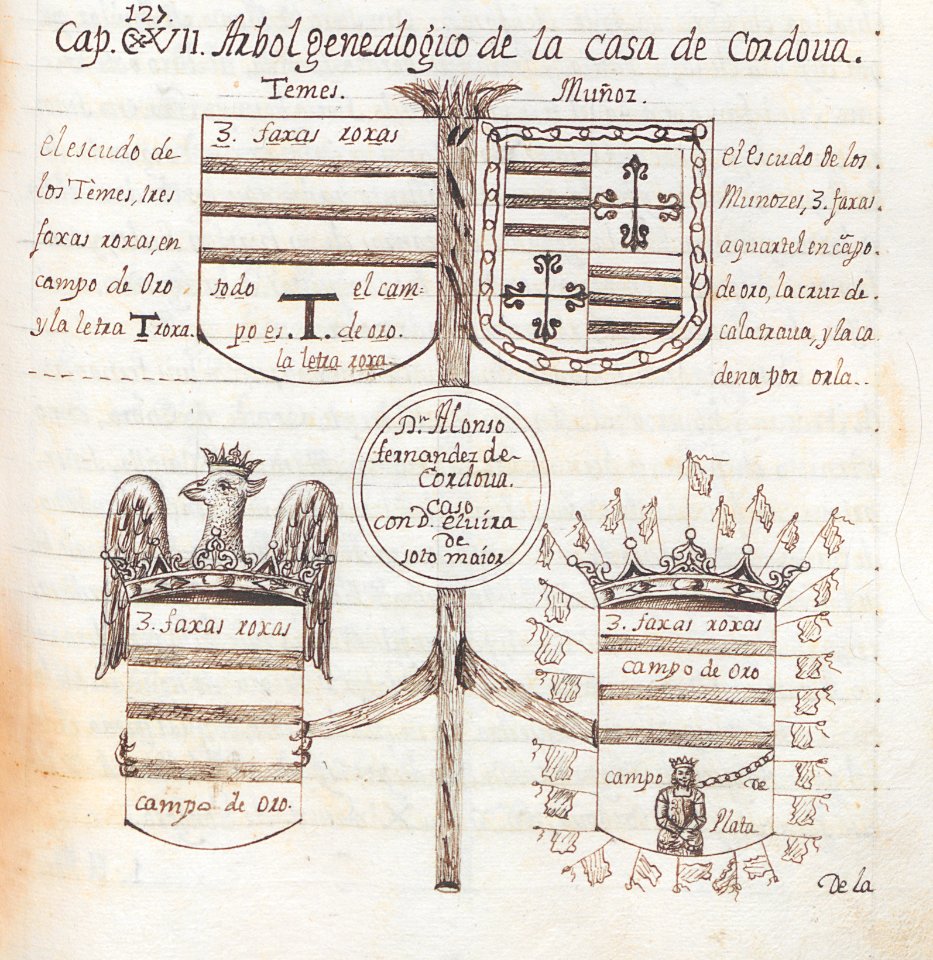 127.
Cap. CXVII. Arbol genealogico de la casa de Cordoua.
Temes.
Muñoz.
el escudo de
los Temes, tres
faxas roxas, en
campo de Oro
y la letra T roxa.
3. faxas roxas
todo el cam=
po es. T. de oro.
la letra roxa
el escudo de los.
Munozes, 3. faxas.
a quartel en cãpo
de oro, la cruz de.
calatraua, y la ca
dena por orla..
Dn. Alonso
fernandez de
Cordoua.
caso
con D. eluira
de
soto maior
3. faxas roxas
campo de Oro.
3. faxas roxas
campo de Oro
campo de
Plata
De la